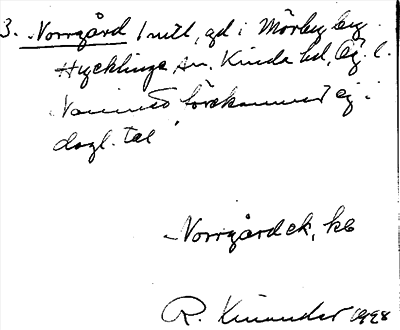 3. Norrgård 1 mtl, gd i Mörby by.
Hycklinge sn. Kinda hd, Ög. l.
Namnet förekommer ej i
dagl. tal
Norrgård ek, kb
R. Kinander 1928